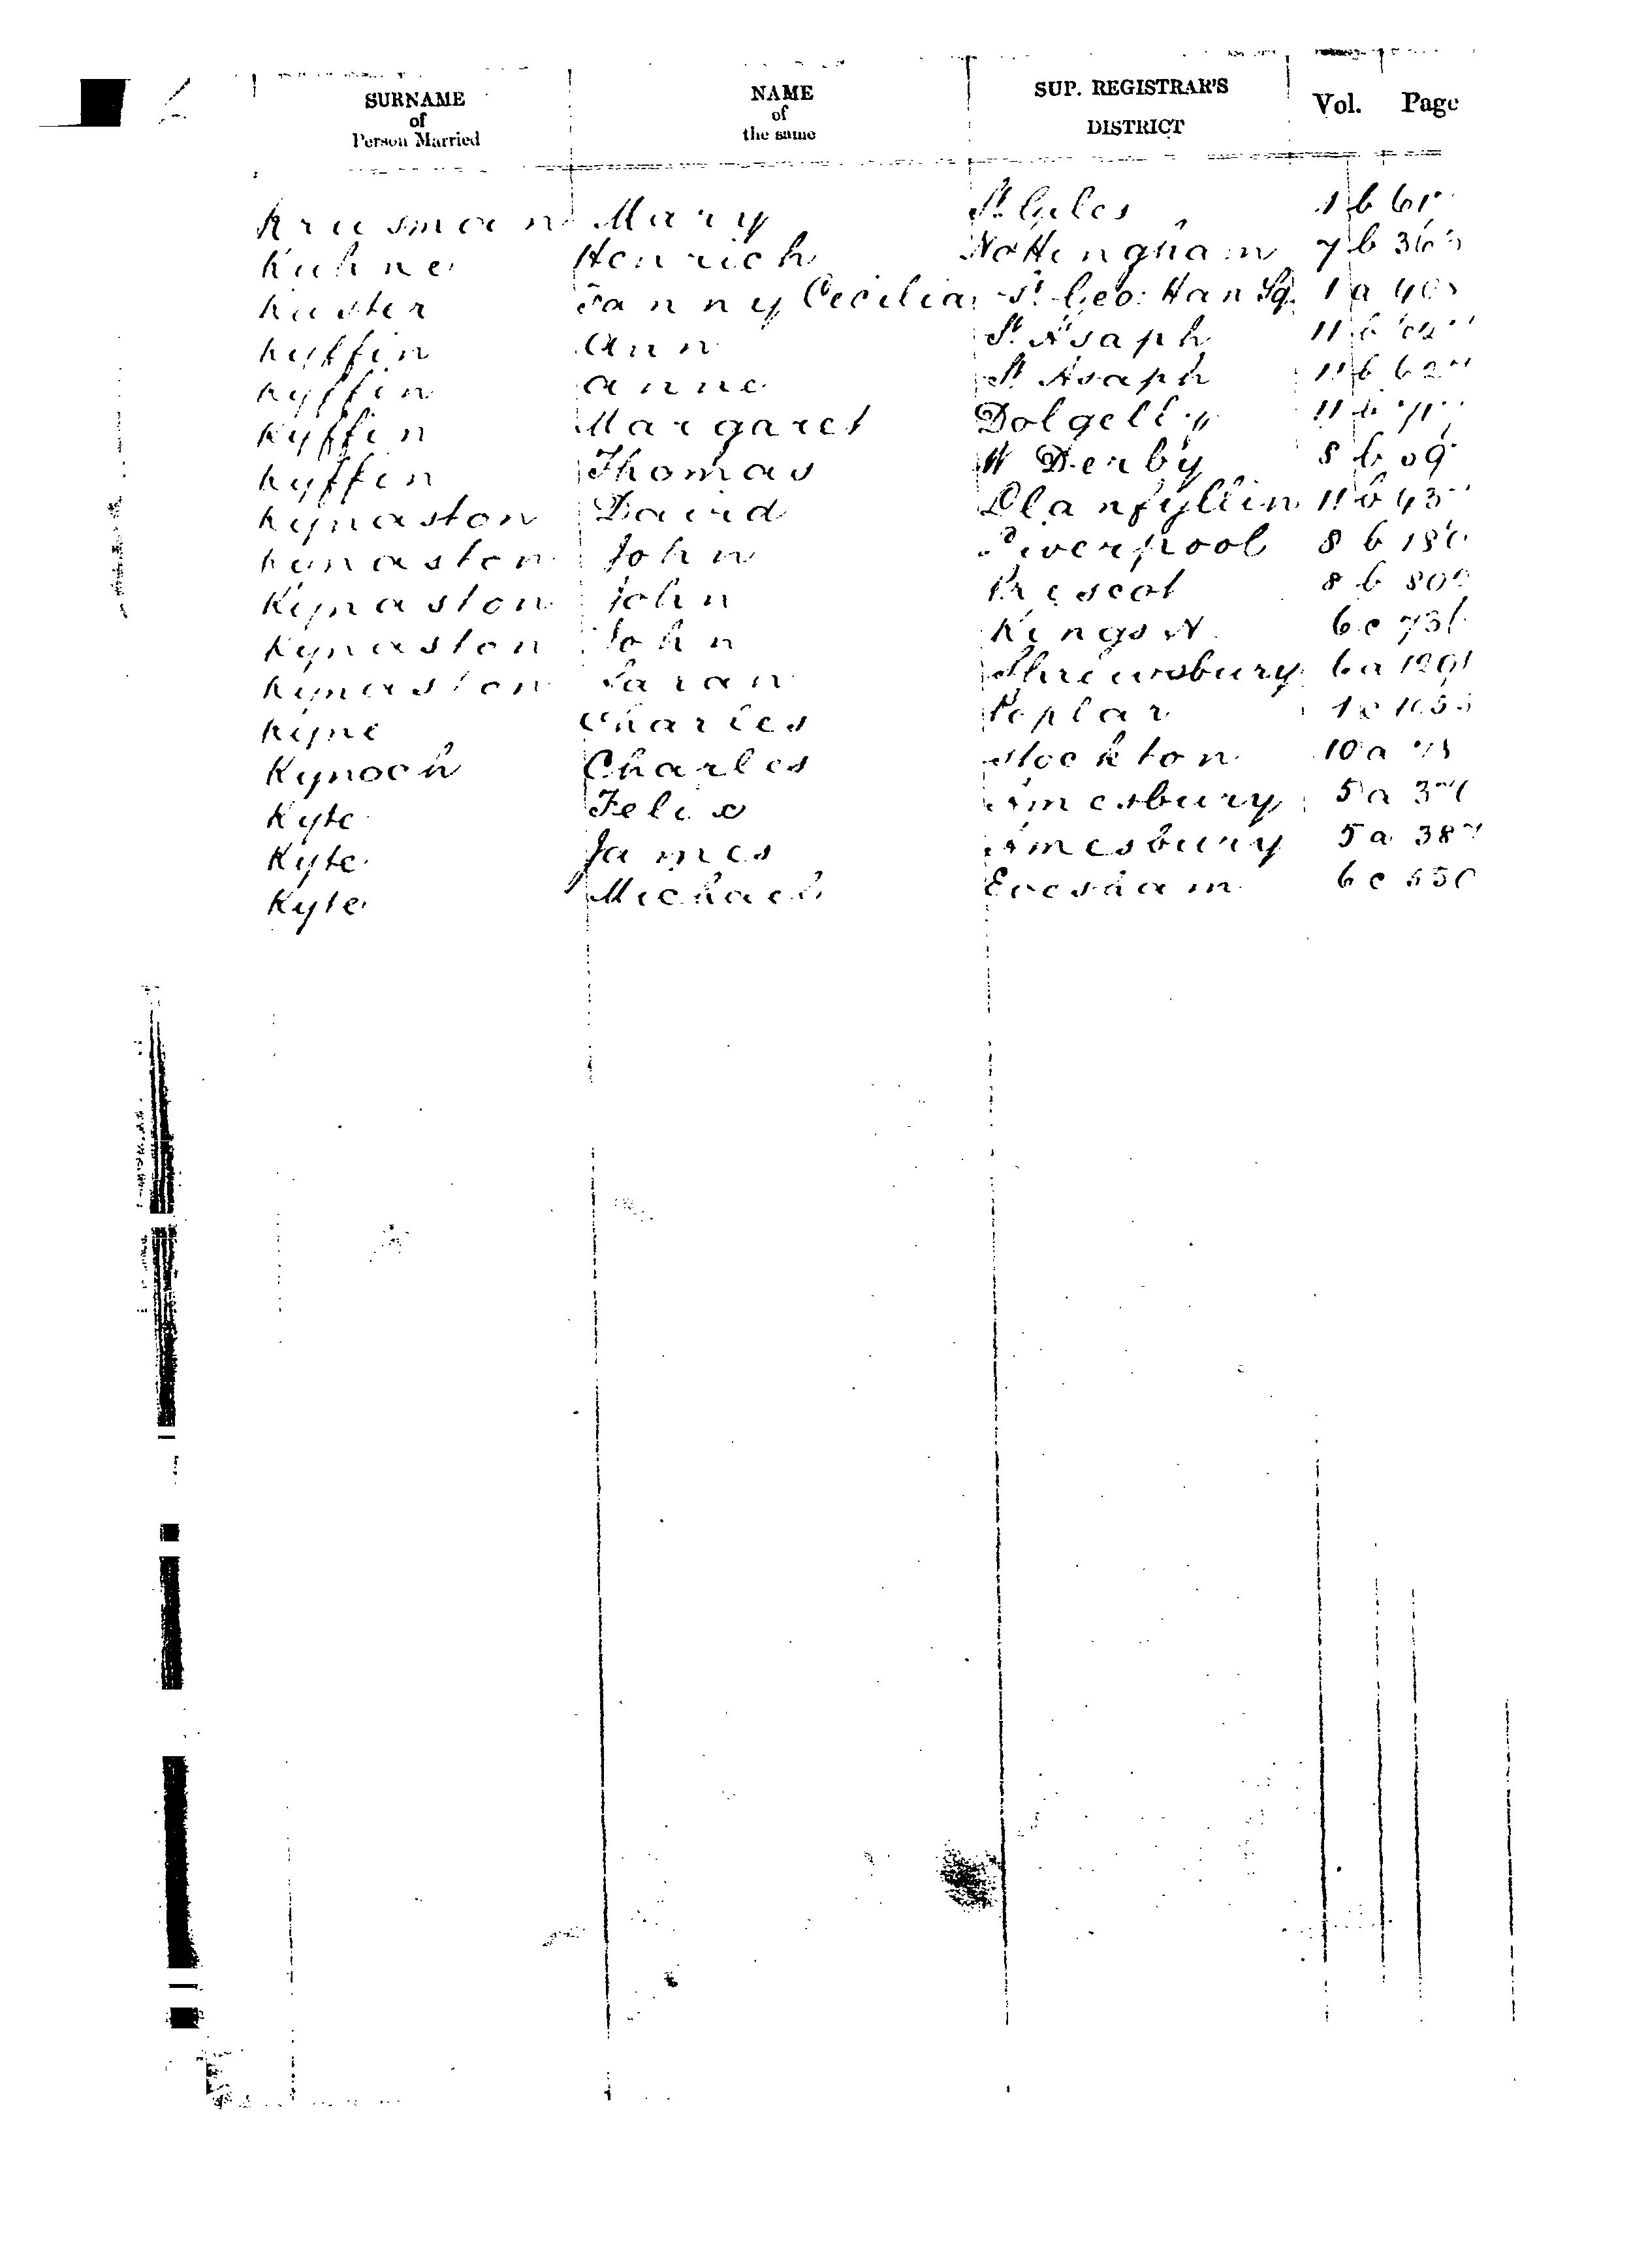 SURNAME of Person Married NAME of the same SUP. REGISTRAR'S DISTRICT Vol. Page
Krusman Mary St. Giles 1 b
Kuhne Henrich Nottingham 7 b
Kuster Fanny Cecilia St. Geo: Han Sq. 1 a
Kyffin Ann St. Asaph 11 b
Kyffin Anne St. Asaph 11 b
Kyffin Margaret Dolgelly 11 b
Kyffin Thomas W Derby 8 b
Kynaston David Llanfyllin 11 b
Kynaston John Liverpool 8 b
Kynaston John Prescot 8 b
Kynaston John Kings N. 6 c
Kynaston Sarah Shrewsbury 6 a
Kyne Charles Poplar 1 c
Kynoch Charles Stockton 10 a
Kyte Felix Amesbury 5 a
Kyte James Amesbury 5 a 387
Kyte Michael Evesham 6 c